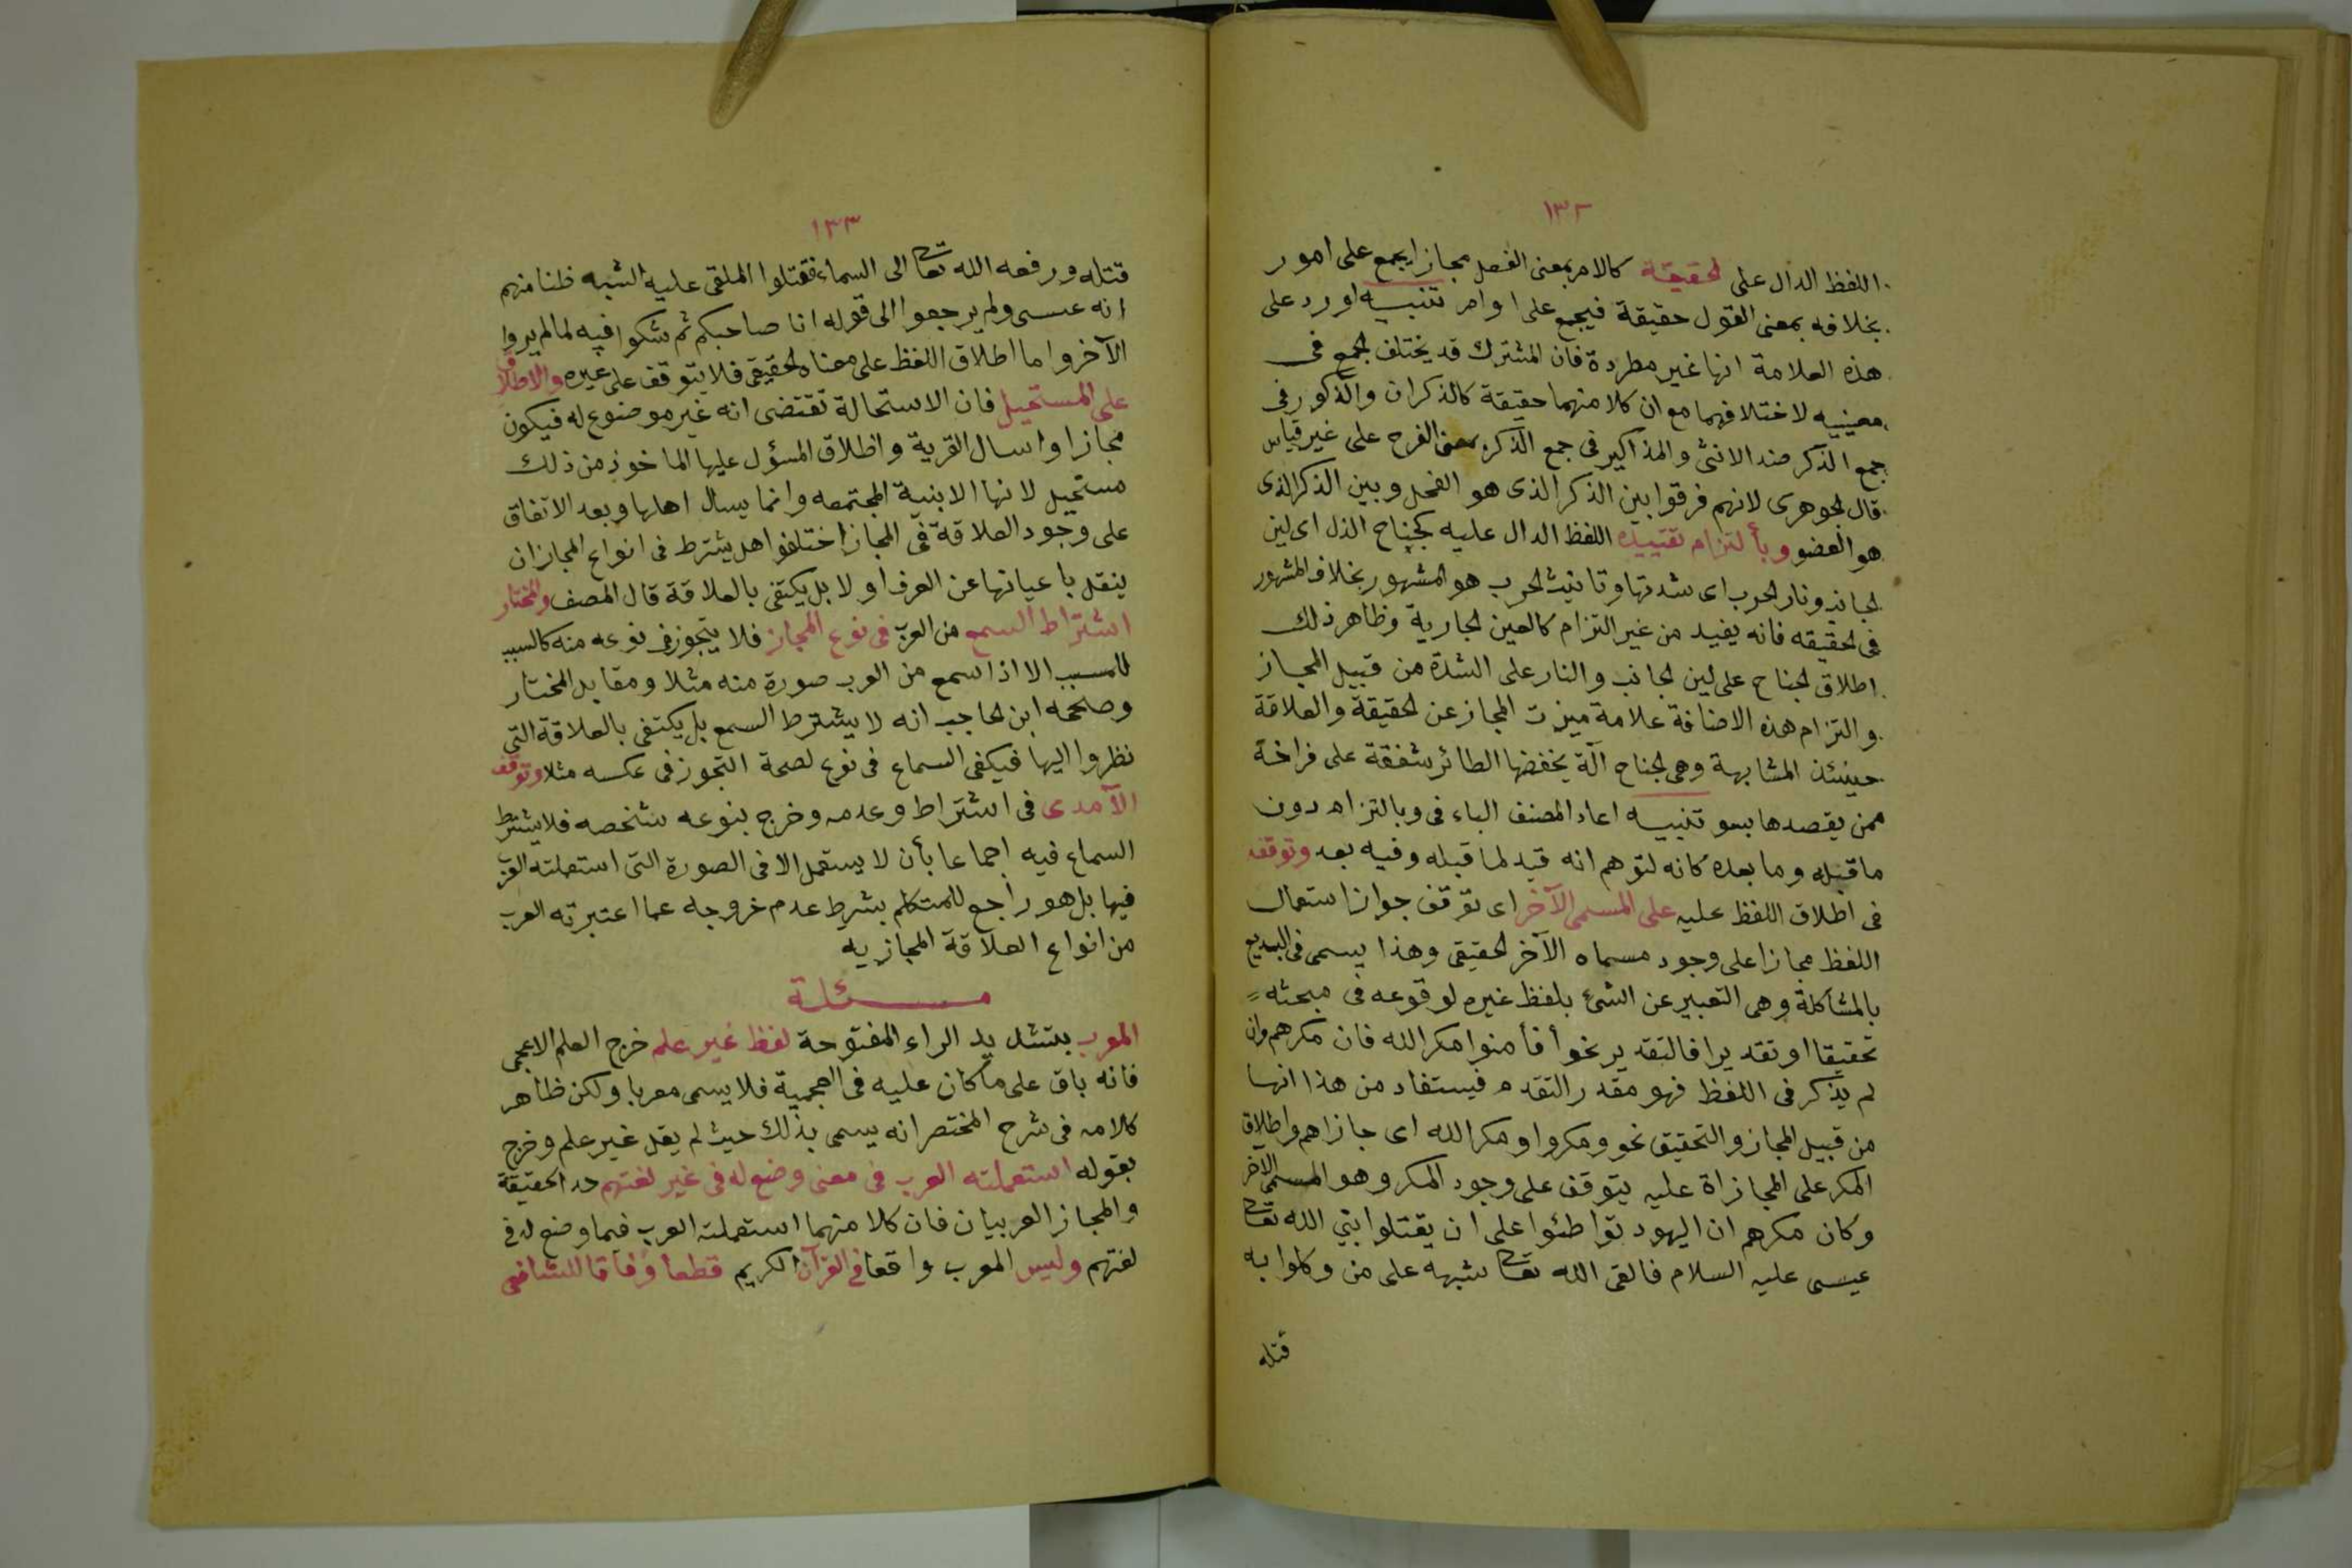 ١٣٢
اللفظ الدال على الحقيقة كالامر بمعنى الفعل مجازا يجمع على امور
بخلافه بمعنى القول حقيقة فيجمع على اوامر تنبيه اورد على
هذه العلامة انها غير مطردة فان المشترك قد يختلف الجمع فى
معنييه لاختلافهما مع ان كلا منهما حقيقة كالذكران والذكور فى
جمع الذكر ضد الانثى والمذاكير فى جمع الذكر بمعنى الفرج على غير قياس
قال الجوهرى لانهم فرقوا بين الذكر الذى هو الفحل وبين الذكر الذى
هو العضو وبألتزام تقييده اللفظ الدال عليه كجناح الذل اى لين
الجانب ونار الحرب اى شدتها وتانيث الحرب هو المشهور بخلاف المشهور
فى الحقيقه فانه يفيد من غير التزام كالعين الجارية وظاهر ذلك
اطلاق الجناح على لين الجانب والنار على الشدة من قبيل المجاز
والتزام هذه الاضافة علامة ميزت المجاز عن الحقيقة والعلاقة
حينئذ المشابهة وهى الجناح آلة يخفضها الطائر شفقة على فراخه
ممن يقصدها بسو تنبيه اعاد المصنف الباء فى وبالتزام دون
ما قبله وما بعده كانه لتوهم انه قيد لما قبله وفيه بعد وتوقفه
فى اطلاق اللفظ عليه على المسمى الآخر اى توقف جواز استعمال
اللفظ مجازا على وجود مسماه الآخر الحقيقى وهذا يسمى فى البديع
بالمشاكلة وهى التعبير عن الشئ بلفظ غيره لوقوعه فى صحبته
تحقيقا او تقديرا فالتقدير نحو أفأمنوا مكر الله فان مكرهم وان
لم يذكر فى اللفظ فهو مقدر التقدم فيستفاد من هذا انها
من قبيل المجاز والتحقيق نحو ومكروا ومكر الله اى جازاهم واطلاق
المكر على المجازاة عليه يتوقف على وجود المكر وهو المسمى الآخر
وكان مكرهم ان اليهود تواطئوا على ان يقتلوا نبي الله تعا
عيسى عليه السلام فالقى الله تعا شبهه على من وكلوا به
قتله
١٣٣
قتله ورفعه الله تعا الى السماء فقتلوا الملقى عليه الشبه ظنا منهم
انه عيسى ولم يرجعوا الى قوله انا صاحبكم ثم شكوا فيه لما لم يروا
الآخر واما اطلاق اللفظ على معناه الحقيقى فلا يتوقف على غيره والاطلاق
على المستحيل فان الاستحالة تقتضى انه غير موضوع له فيكون
مجازا واسال القرية واطلاق المسؤل عليها الماخوذ من ذلك
مستحيل لانها الابنية المجتمعه وانما يسال اهلها وبعد الاتفاق
على وجود العلاقة فى المجاز اختلفوا هل يشترط فى انواع المجاز ان
ينقل باعيانها عن العرف او لا بل يكتفى بالعلاقة قال المصنف والمختار
اشتراط السمع من العرب فى نوع المجاز فلا يتجوز فى نوعه منه كالسبب
للمسبب الا اذا سمع من العرب صورة منه مثلا ومقابل المختار
وصححه ابن الحاجب انه لا يشترط السمع بل يكتفى بالعلاقة التى
نظروا اليها فيكفى السماع فى نوع لصحة التجوز فى عكسه مثلا وتوقف
الآمدى فى اشتراط وعدمه وخرج بنوعه شخصه فلا يشترط
السماع فيه اجماعا بأن لا يستعمل الا فى الصورة التى استعملته العرب
فيها بل هو راجع للمتكلم بشرط عدم خروجه عما اعتبرته العرب
من انواع العلاقة المجازيه
مسئلة
المعرب بتشديد الراء المفتوحة لفظ غير علم خرج العلم الاعجمى
فانه باق على ما كان عليه فى العجمية فلا يسمى معربا ولكن ظاهر
كلامه فى شرح المختصر انه يسمى بذلك حيث لم يقل غير علم وخرج
بقوله استعملته العرب فى معنى وضع له فى غير لغتهم الحقيقة
والمجاز العربيان فان كلا منهما استعملته العرب فيما وضع له فى
لغتهم وليس المعرب واقعا فى القرآن الكريم قطعا وفاقا للشافعى